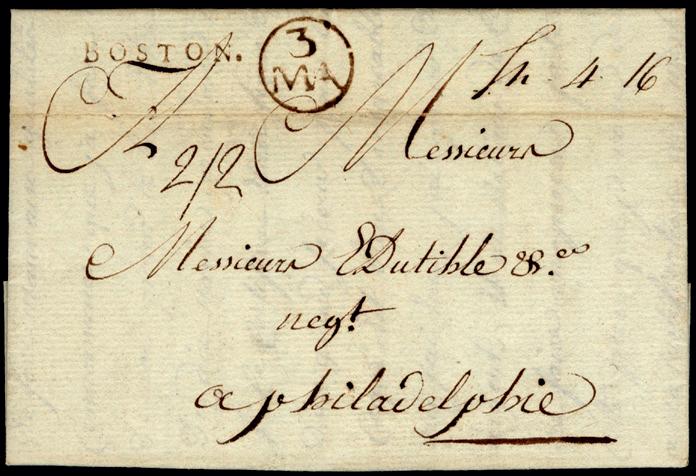 BOSTON.
3
MA
4 16
A
2/2
Messieurs
Messieurs E Dutilhe & Co
negt.
a philadelphie